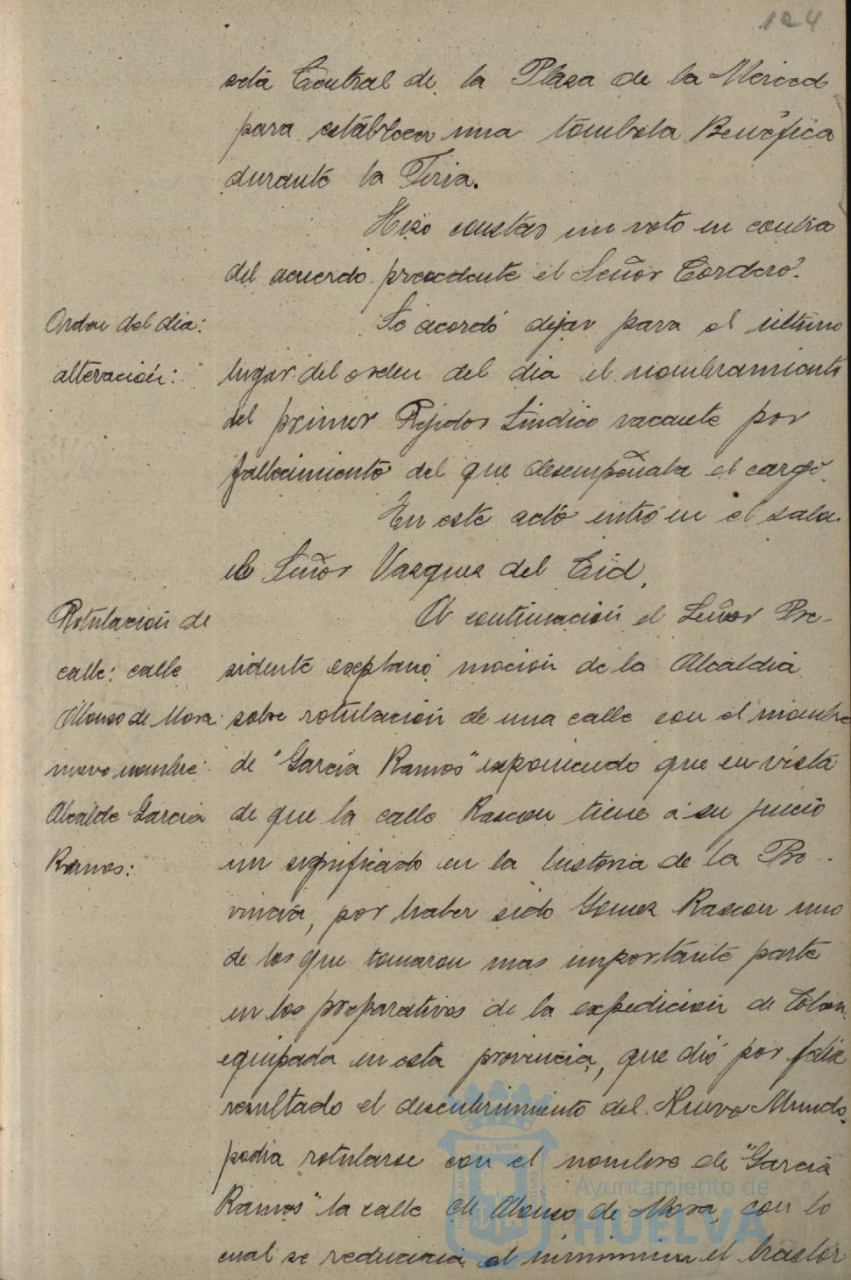 124
seta Central de la Plaza de la Merced
para establecer una tómbola Benéfica
durante la Feria.
Hizo constar un voto en contra
del acuerdo precedente el Señor Cordero.
Orden del dia:
alteración:
Se acordó dejar para el ultimo
lugar del orden del dia el nombramiento
del primer Rejidor Sindico vacante por
fallecimiento del que desempeñaba el cargo.
En este acto entró en el sala
el Señor Vazquez del Cid.
Rotulación de
calle: calle
Alonso de Mora
nuevo nombre:
Alcalde Garcia
Ramos:
A continuación el Señor Pre-
sidente explanó moción de la Alcaldia
sobre rotulación de una calle con el nombre
de "Garcia Ramos" exponiendo que en vista
de que la calle Rascon tiene a su juicio
un significado en la historia de la Pro-
vincia, por haber sido Gomez Rascon uno
de los que tomaron mas importante parte
en los preparativos de la expedición de Colon,
equipada en esta provincia, que dió por feliz
resultado el descubrimiento del Nuevo Mundo,
podia rotularse con el nombre de "Garcia
Ramos" la calle de Alonso de Mora, con lo
cual se reduciria al minimum el trastor
EL TERRÆ
Ayuntamiento de
HUELVA